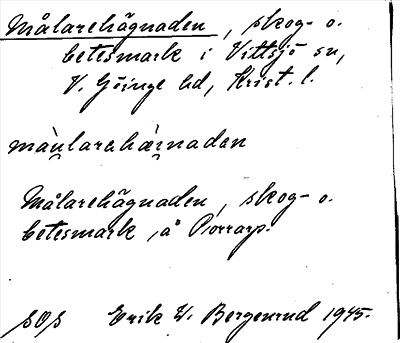 Målarehägnaden, skog- o.
betesmark i Vittsjö sn,
V. Göinge hd, Krist. l.
målarehägnaden
Målarehägnaden, skog- o.
betesmark, å Porrarp.
SOS Erik W. Bergenrud 1945.